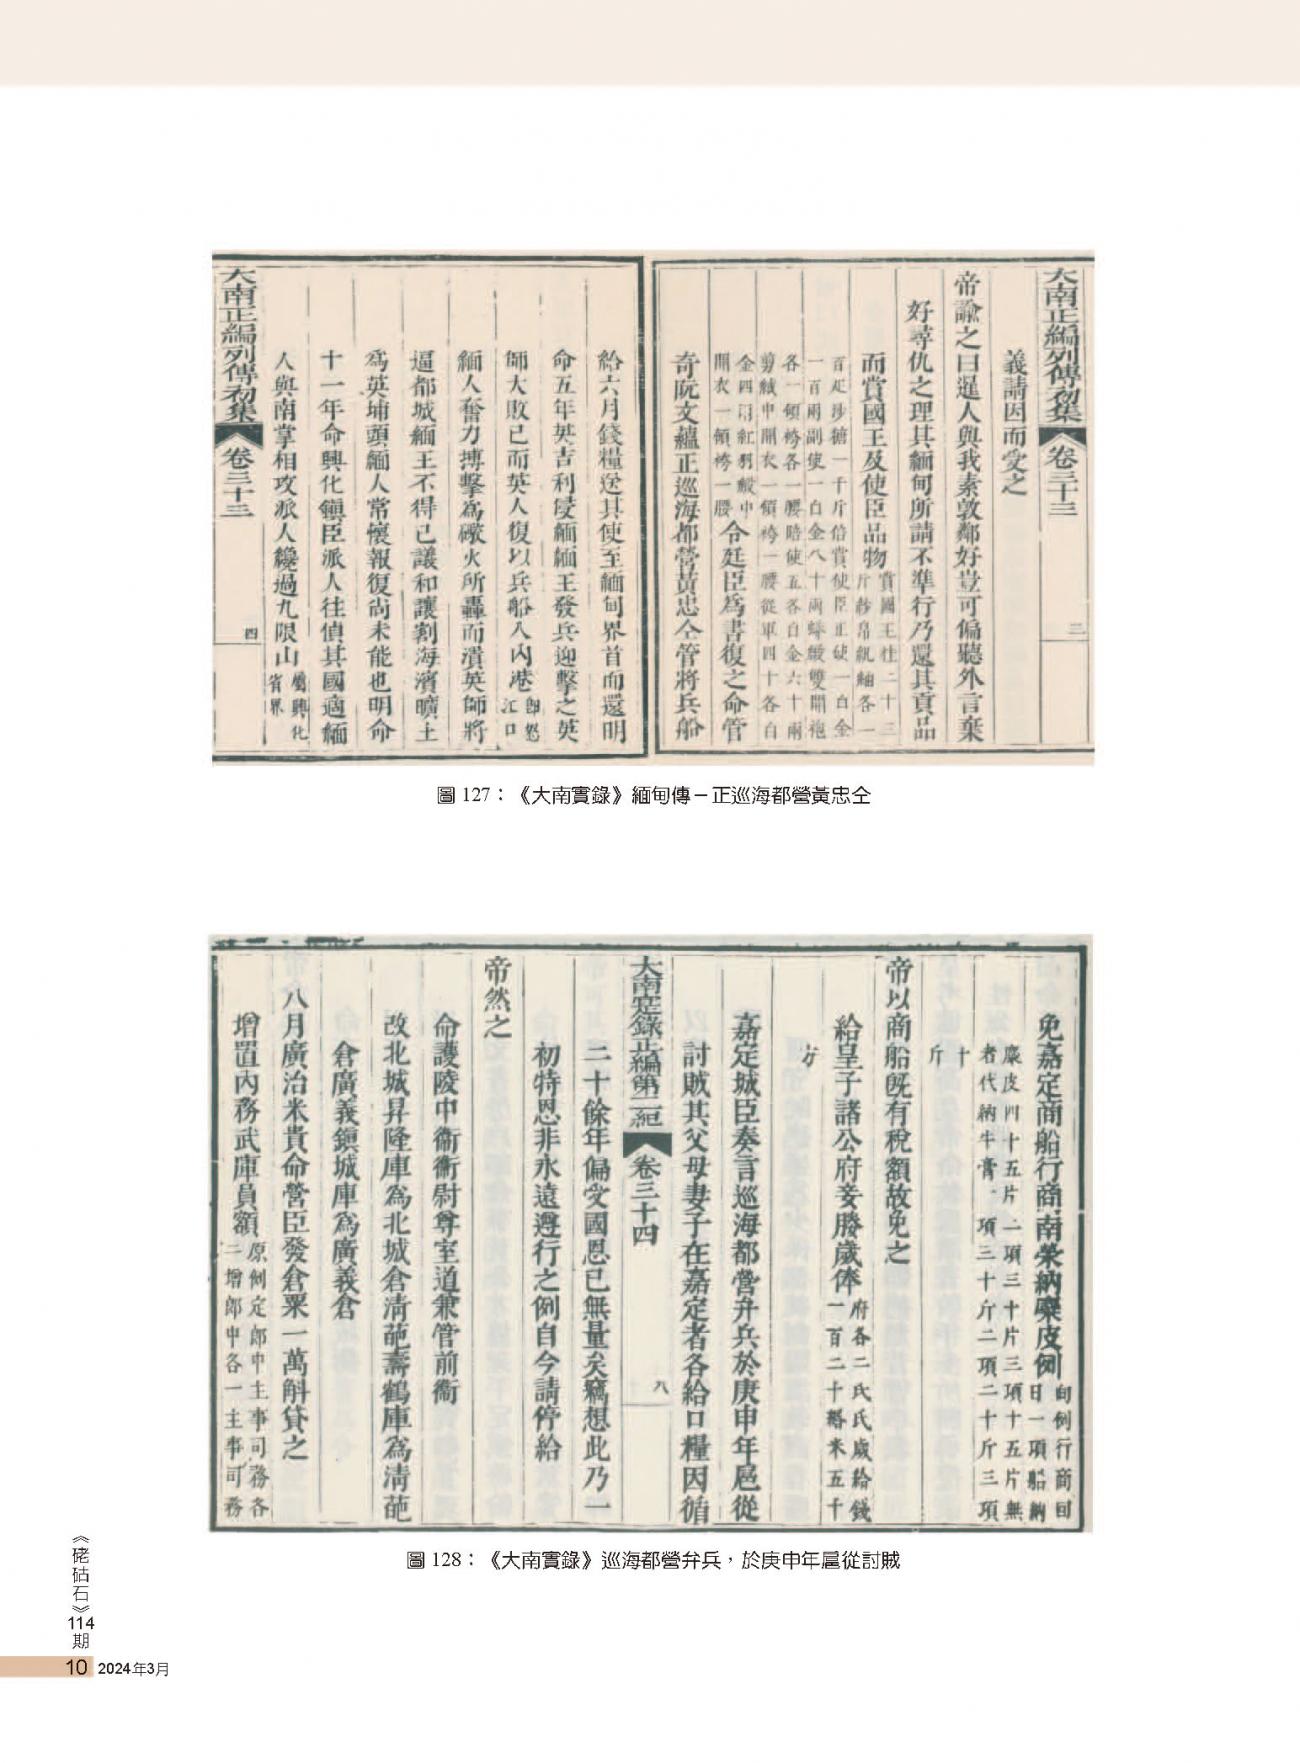 大南正編列傳初集 卷三十三 三
義請因而受之
帝諭之曰暹人與我素敦鄰好豈可偏聽外言棄
好尋仇之理其緬甸所請不準行乃還其貢品
而賞國王及使臣品物賞國王桂二十三
斤紗帛紈紬各一
百疋珍糖一千斤倍賞使臣正使一白金
一百兩副使一白金八十兩蟒緞雙開袍
各一領袴各一腰陪使五各白金六十兩
剪絨中開衣一領袴一腰從軍四十各白
金四兩紅羽緞中
開衣一領袴一腰令廷臣為書復之命管
奇阮文蘊正巡海都營黃忠仝管將兵船
給六月錢糧送其使至緬甸界首而還明
命五年英吉利侵緬緬王發兵迎擊之英
師大敗已而英人復以兵船入內港即怒
江口
緬人奮力搏擊為礮火所轟而潰英師將
逼都城緬王不得已議和讓割海濱曠土
為英埔頭緬人常懷報復尚未能也明命
十一年命興化鎮臣派人往偵其國適緬
人與南掌相攻派人纔過九限山屬興化
省界
大南正編列傳初集 卷三十三 四
圖 127：《大南實錄》緬甸傳－正巡海都營黃忠仝
免嘉定商船行商南榮納麋皮例向例行商回
日一項船納
麋皮四十五片二項三十片三項十五片無
者代納牛膏一項三十斤二項二十斤三項
十
斤
帝以商船既有稅額故免之
給皇子諸公府妾媵歲俸府各二氏氏歲給錢
一百二十緡米五十
方
嘉定城臣奏言巡海都營弁兵於庚申年扈從
討賊其父母妻子在嘉定者各給口糧因循
大南寔錄正編第二紀 卷三十四 八
二十餘年偏受國恩已無量矣竊想此乃一
初特恩非永遠遵行之例自今請停給
帝然之
命護陵中衞衞尉尊室道兼管前衞
改北城昇隆庫為北城倉清葩壽鶴庫為清葩
倉廣義鎮城庫為廣義倉
八月廣治米貴命營臣發倉粟一萬斛貸之
增置內務武庫員額原例定郎中主事司務各
二增郎中各一主事司務
圖 128：《大南實錄》巡海都營弁兵，於庚申年扈從討賊
《硓𥑮石》114期
10 2024年3月